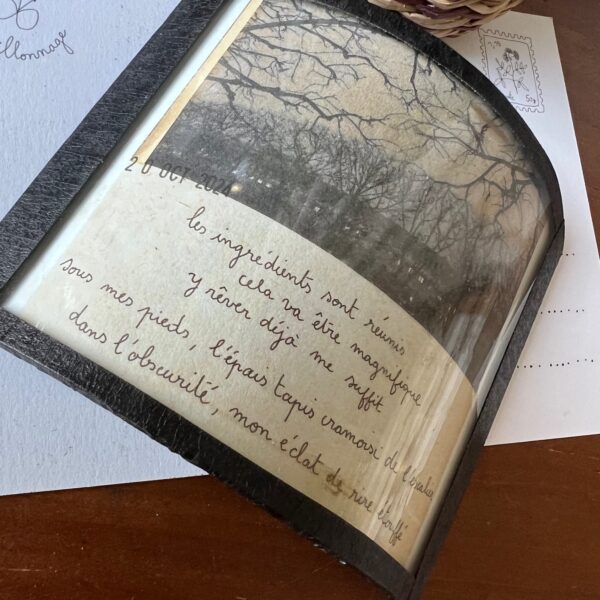 llonnage
20 OCT 202
les ingrédients sont réunis
cela va être magnifique
y rêver déjà me suffit
sous mes pieds, l'épais tapis cramoisi de l'escalier
dans l'obscurité, mon éclat de rire étouffé